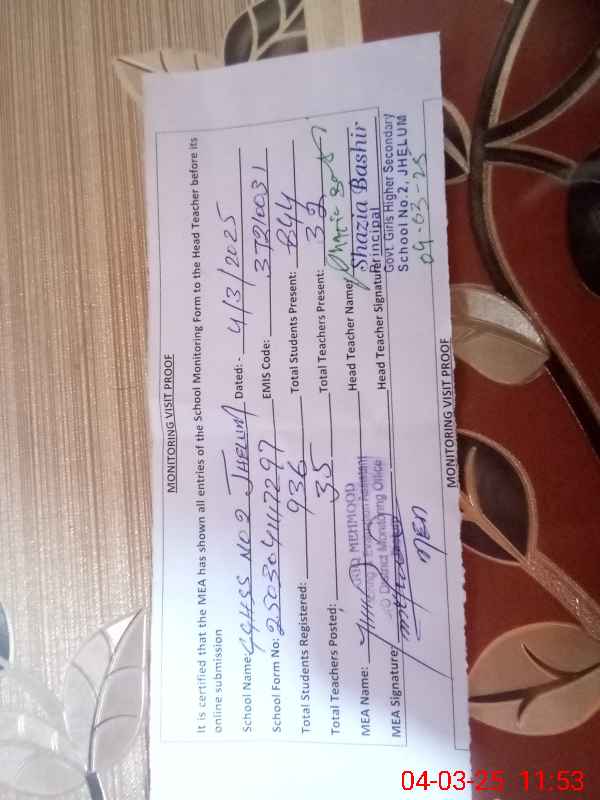 MONITORING VISIT PROOF
It is certified that the MEA has shown all entries of the School Monitoring Form to the Head Teacher before its
online submission
School Name: GGHSS NO 2 JHELUM Dated:- 4/3/2025
School Form No: EMIS Code: 37210031
Total Students Registered: 936 Total Students Present: 844
Total Teachers Posted: 35 Total Teachers Present: 32
MEA Name: MEHMOOD Head Teacher Name: Shazia Bashir
Evaluation Assistant
O/O District Monitoring Office
MEA Signature: Head Teacher Signature: Principal
Govt. Girls Higher Secondary
School No.2, JHELUM
04-03-25
MEA
MONITORING VISIT PROOF
04-03-25 11:53